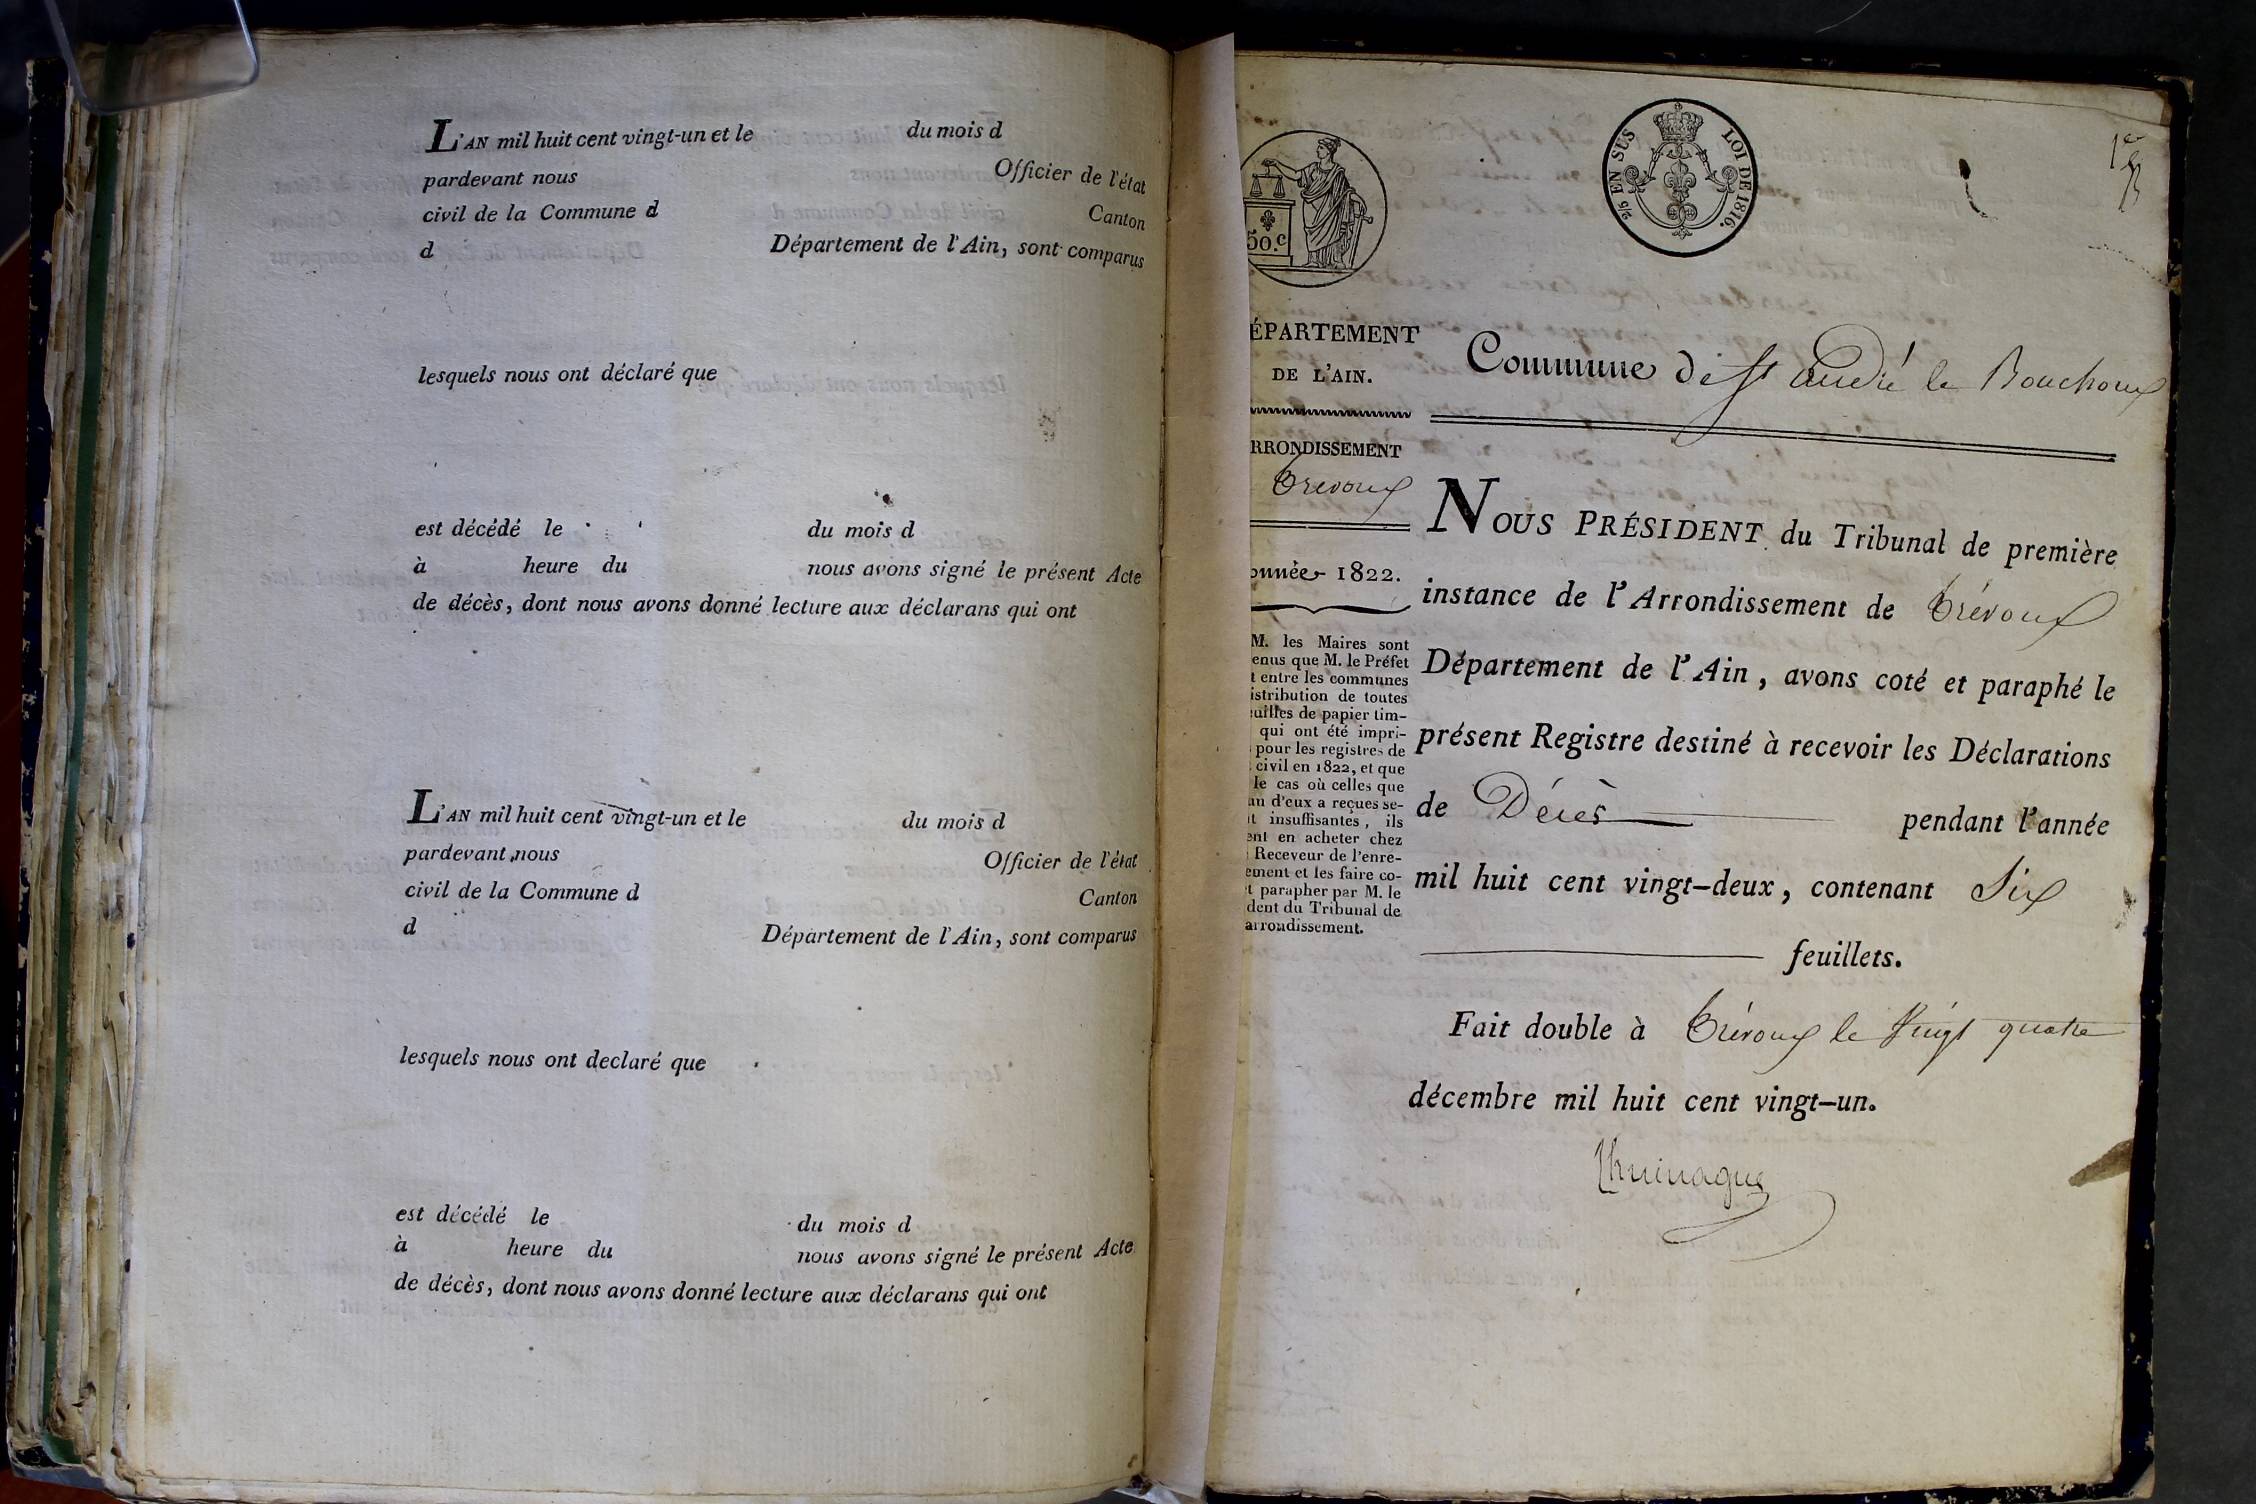 L'AN mil huit cent vingt-un et le du mois d
pardevant nous Officier de l'état
civil de la Commune d Canton
d Département de l'Ain, sont comparus
lesquels nous ont déclaré que
est décédé le du mois d
à heure du nous avons signé le présent Acte
de décès, dont nous avons donné lecture aux déclarans qui ont
L'AN mil huit cent vingt-un et le du mois d
pardevant nous Officier de l'état
civil de la Commune d Canton
d Département de l'Ain, sont comparus
lesquels nous ont declaré que
est décédé le du mois d
à heure du nous avons signé le présent Acte
de décès, dont nous avons donné lecture aux déclarans qui ont
50.c
2/5 EN SUS LOI DE 1816.
1er
ÉPARTEMENT
DE L'AIN.
RRONDISSEMENT
Trevoux
onnée 1822.
M. les Maires sont
enus que M. le Préfet
t entre les communes
istribution de toutes
euilles de papier tim-
qui ont été impri-
pour les registres de
civil en 1822, et que
le cas où celles que
un d'eux a reçues se-
t insuffisantes, ils
ent en acheter chez
Receveur de l'enre-
ement et les faire co-
t parapher par M. le
dent du Tribunal de
arrondissement.
Commune de St André le Bouchoux
NOUS PRÉSIDENT du Tribunal de première
instance de l'Arrondissement de Trévoux
Département de l'Ain, avons coté et paraphé le
présent Registre destiné à recevoir les Déclarations
de Décès pendant l'année
mil huit cent vingt-deux, contenant Six
feuillets.
Fait double à Trévoux le Vingt quatre
décembre mil huit cent vingt-un.